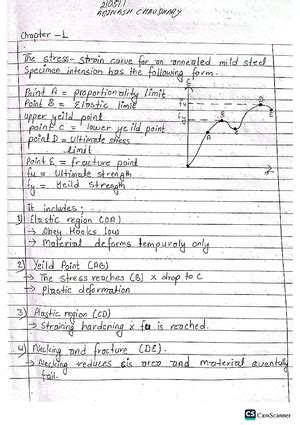 210511
ABINASH CHAUDHARY
Chapter - 1
The stress - strain curve for an annealed mild steel
Specimen intension has the following form.
Point A = proportionality limit
Point B = Elastic limit
upper yeild point
point C = lower yeild point
point D = Ultimate stress
limit
Point E = fracture point
fu = Ultimate strength
fy = Yeild strength
fu
A
D
E
It includes;
1) Elastic region (OA)
→ Obey Hooks low
→ Material deforms tempuraly only
2) Yeild Point (AB)
→ The stress reaches (B) x drop to C
→ Plastic deformation
3) Plastic region (CD)
→ Straining hardening x fu is reached.
4) Necking and fracture (DE).
→ Necking reduces area and material aventully
fail.
CS CamScanner